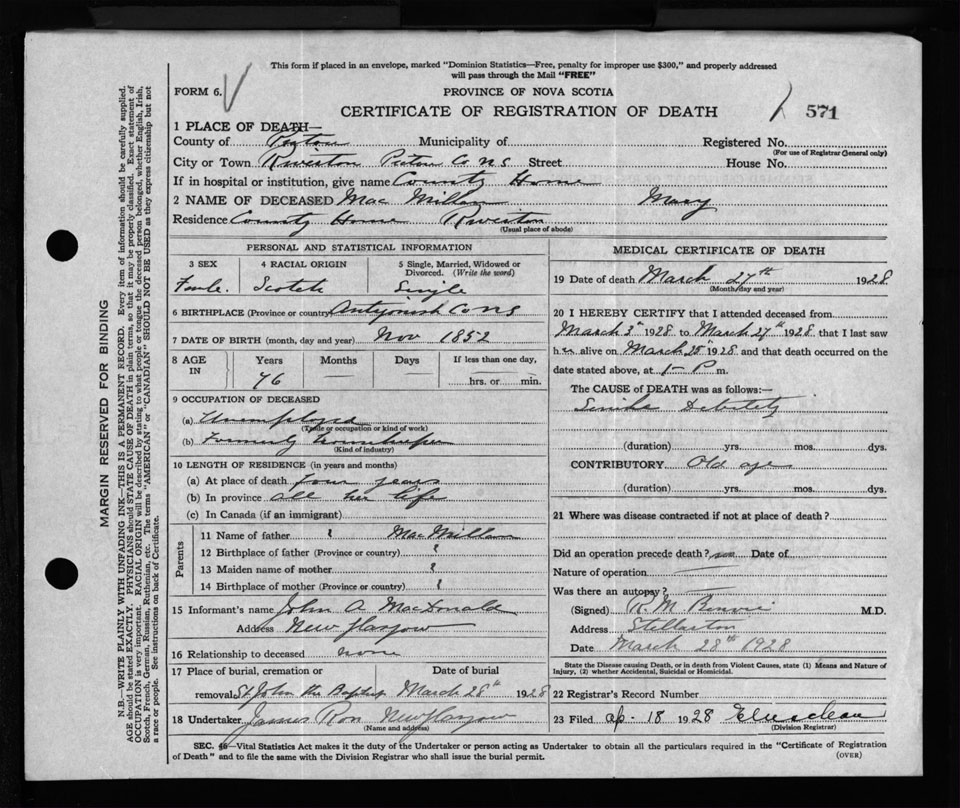 This form if placed in an envelope, marked "Dominion Statistics—Free, penalty for improper use $300," and properly addressed
will pass through the Mail "FREE"
FORM 6.
PROVINCE OF NOVA SCOTIA
CERTIFICATE OF REGISTRATION OF DEATH
571
1 PLACE OF DEATH—
County of Pictou Municipality of Registered No.
(For use of Registrar General only)
City or Town Riverton Pictou Co N S Street House No.
If in hospital or institution, give name County Home
2 NAME OF DECEASED Mac Millan Mary
Residence County Home Riverton
(Usual place of abode)
PERSONAL AND STATISTICAL INFORMATION
3 SEX 4 RACIAL ORIGIN 5 Single, Married, Widowed or Divorced. (Write the word)
Scotch Single
6 BIRTHPLACE (Province or country) Antigonish Co N S
7 DATE OF BIRTH (month, day and year) Nov 1852
8 AGE IN Years Months Days If less than one day,
76 hrs. or min.
9 OCCUPATION OF DECEASED
(a) Unemployed
(Trade or occupation or kind of work)
(b) Formerly housekeeper
(Kind of industry)
10 LENGTH OF RESIDENCE (in years and months)
(a) At place of death four years
(b) In province all her life
(c) In Canada (if an immigrant)
Parents
11 Name of father ? MacMillan
12 Birthplace of father (Province or country) ?
13 Maiden name of mother ?
14 Birthplace of mother (Province or country) ?
15 Informant's name John A. MacDonald
Address New Glasgow
16 Relationship to deceased none
17 Place of burial, cremation or Date of burial
removal St John the Baptist March 28th 1928
18 Undertaker James Ross New Glasgow
(Name and address)
MEDICAL CERTIFICATE OF DEATH
19 Date of death March 27th 1928
(Month, day and year)
20 I HEREBY CERTIFY that I attended deceased from
March 3rd 1928 to March 27th 1928 that I last saw
her alive on March 1928 and that death occurred on the
date stated above, at 1- P m.
The CAUSE of DEATH was as follows:—
Senile Debility
(duration) yrs. mos. dys.
CONTRIBUTORY Old age
(duration) yrs. mos. dys.
21 Where was disease contracted if not at place of death?
Did an operation precede death? no Date of
Nature of operation
Was there an autopsy?
(Signed) M.D.
Address Stellarton
Date March 28th 1928
State the Disease causing Death, or in death from Violent Causes, state (1) Means and Nature of
Injury, (2) whether Accidental, Suicidal or Homicidal.
22 Registrar's Record Number
23 Filed Ap- 18 1928
(Division Registrar)
SEC. 46—Vital Statistics Act makes it the duty of the Undertaker or person acting as Undertaker to obtain all the particulars required in the "Certificate of Registration
of Death" and to file the same with the Division Registrar who shall issue the burial permit.
(OVER)
MARGIN RESERVED FOR BINDING
N.B.—WRITE PLAINLY WITH UNFADING INK—THIS IS A PERMANENT RECORD. Every item of information should be carefully supplied.
AGE should be stated EXACTLY. PHYSICIANS should STATE CAUSE OF DEATH in plain terms, so that it may be properly classified. Exact statement of
OCCUPATION is very important. RACIAL ORIGIN will be described by stating to what people or tongue the deceased person belonged, whether English, Irish,
Scotch, French, German, Russian, Ruthenian, etc. The terms "AMERICAN" or "CANADIAN" SHOULD NOT BE USED as they express citizenship but not
a race or people. See instructions on back of Certificate.